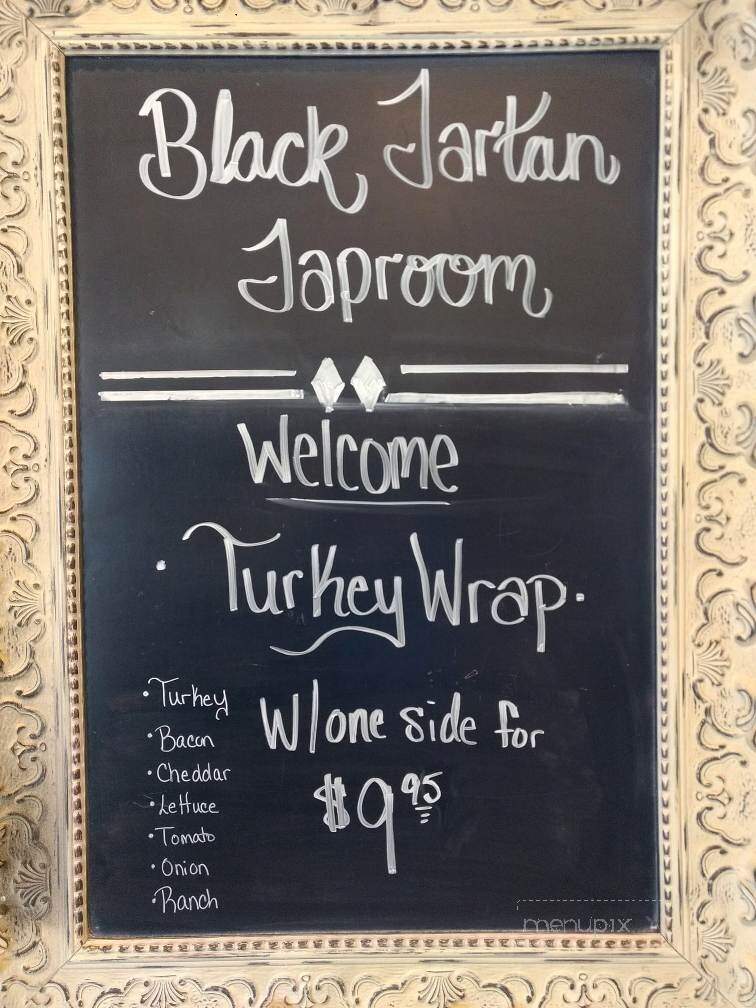 Black Tartan
Taproom
Welcome
· Turkey Wrap ·
W/one side for
$9.95
· Turkey
· Bacon
· Cheddar
· Lettuce
· Tomato
· Onion
· Ranch
menupix